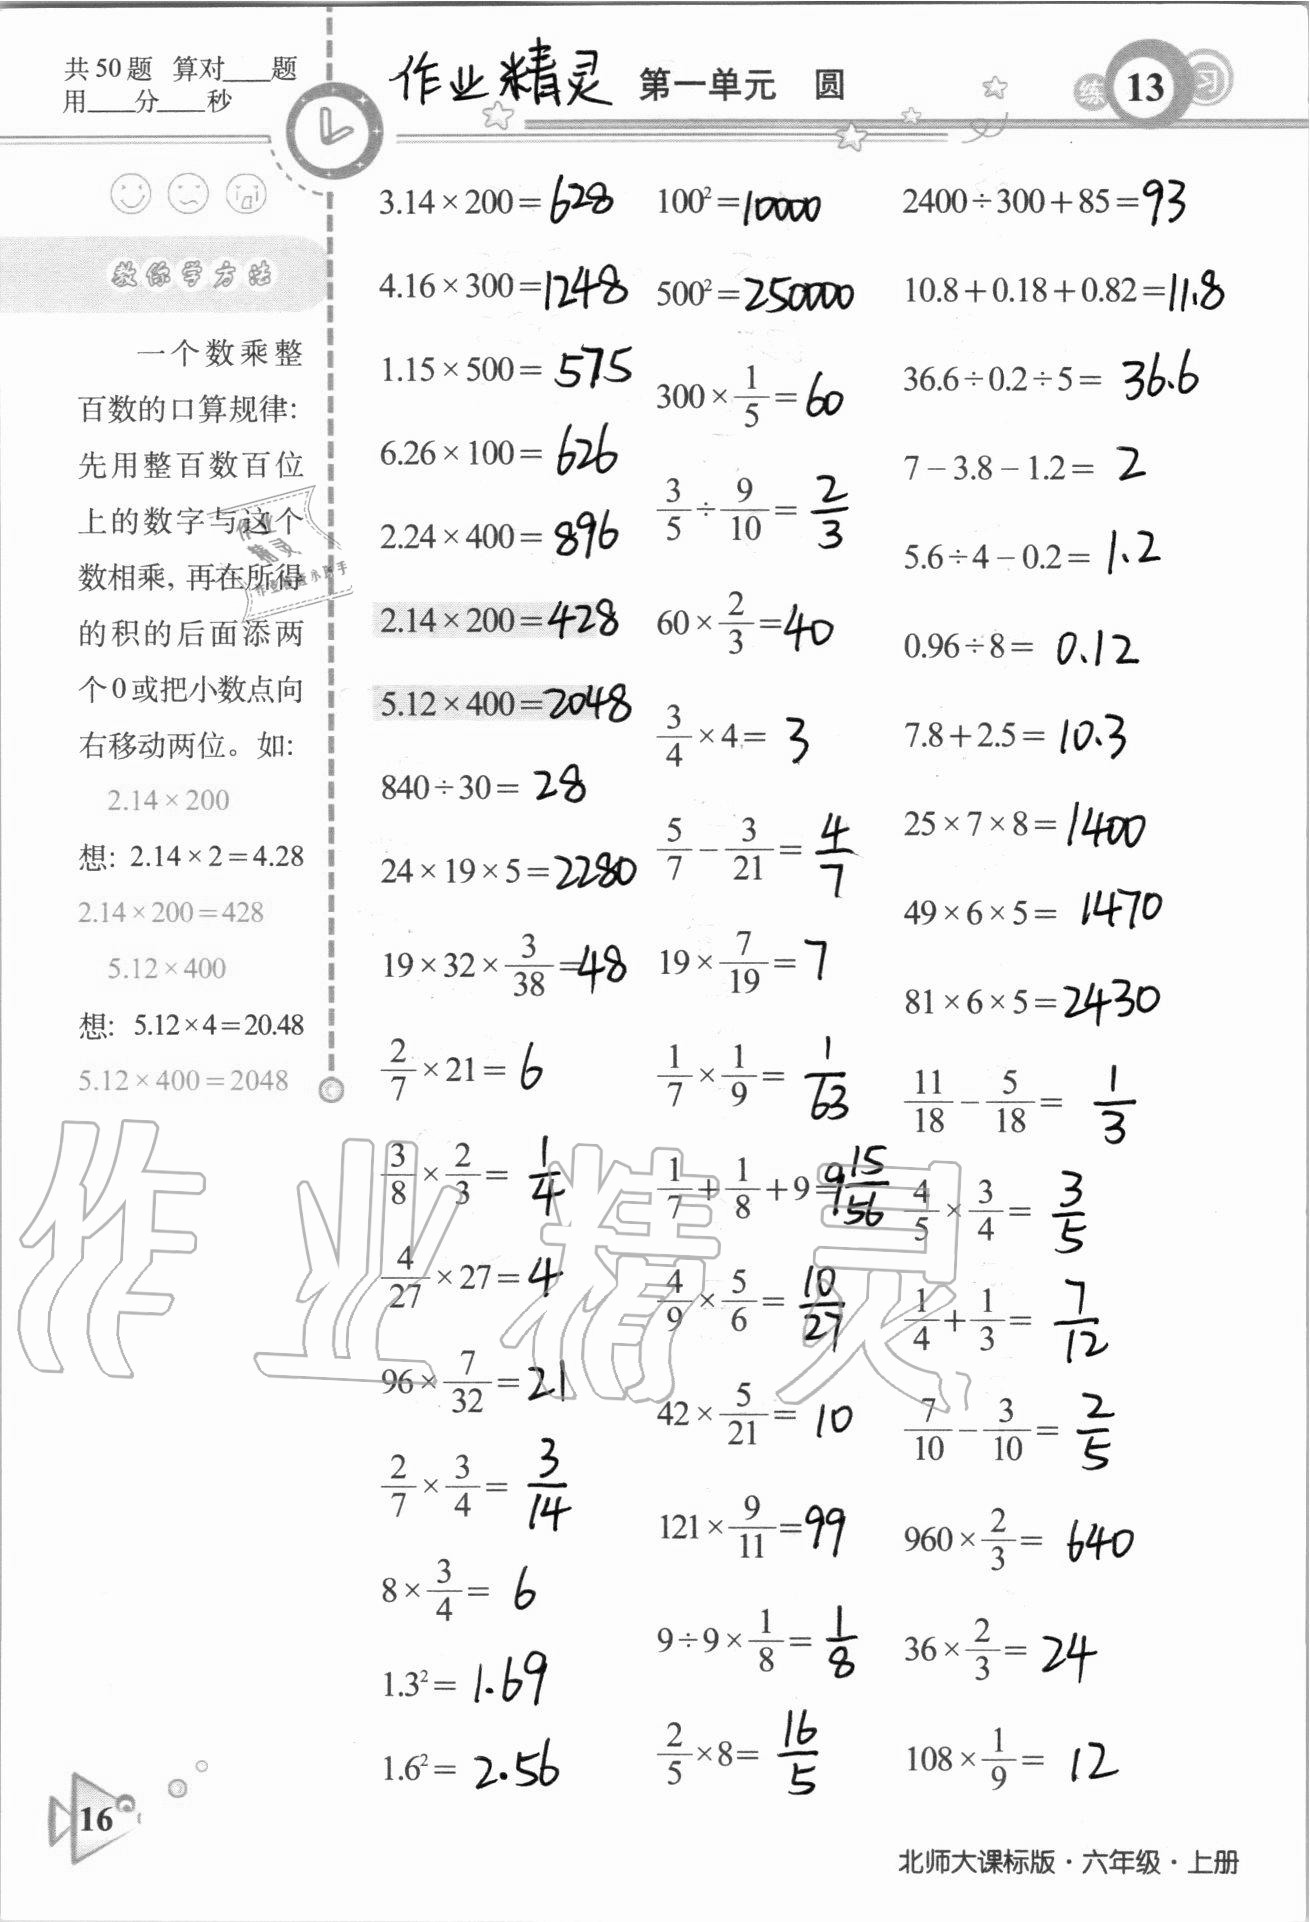 共50题 算对____题
用____分____秒
作业精灵 第一单元 圆
练 13 习
教你学方法
一个数乘整
百数的口算规律:
先用整百数百位
上的数字与这个
数相乘,再在所得
的积的后面添两
个0或把小数点向
右移动两位。如:
2.14×200
想: 2.14×2=4.28
2.14×200=428
5.12×400
想: 5.12×4=20.48
5.12×400=2048
3.14×200=628
4.16×300=1248
1.15×500=575
6.26×100=626
2.24×400=896
2.14×200=428
5.12×400=2048
840÷30=28
24×19×5=2280
19×32×3/38=48
2/7×21=6
3/8×2/3=1/4
4/27×27=4
96×7/32=21
2/7×3/4=3/14
8×3/4=6
1.3²=1.69
1.6²=2.56
100²=10000
500²=250000
300×1/5=60
3/5÷9/10=2/3
60×2/3=40
3/4×4=3
5/7-3/21=4/7
19×7/19=7
1/7×1/9=1/63
1/7+1/8+9=9 15/56
4/9×5/6=10/27
42×5/21=10
121×9/11=99
9÷9×1/8=1/8
2/5×8=16/5
2400÷300+85=93
10.8+0.18+0.82=11.8
36.6÷0.2÷5=36.6
7-3.8-1.2=2
5.6÷4-0.2=1.2
0.96÷8=0.12
7.8+2.5=10.3
25×7×8=1400
49×6×5=1470
81×6×5=2430
11/18-5/18=1/3
4/5×3/4=3/5
1/4+1/3=7/12
7/10-3/10=2/5
960×2/3=640
36×2/3=24
108×1/9=12
作业精灵
16
北师大课标版·六年级·上册